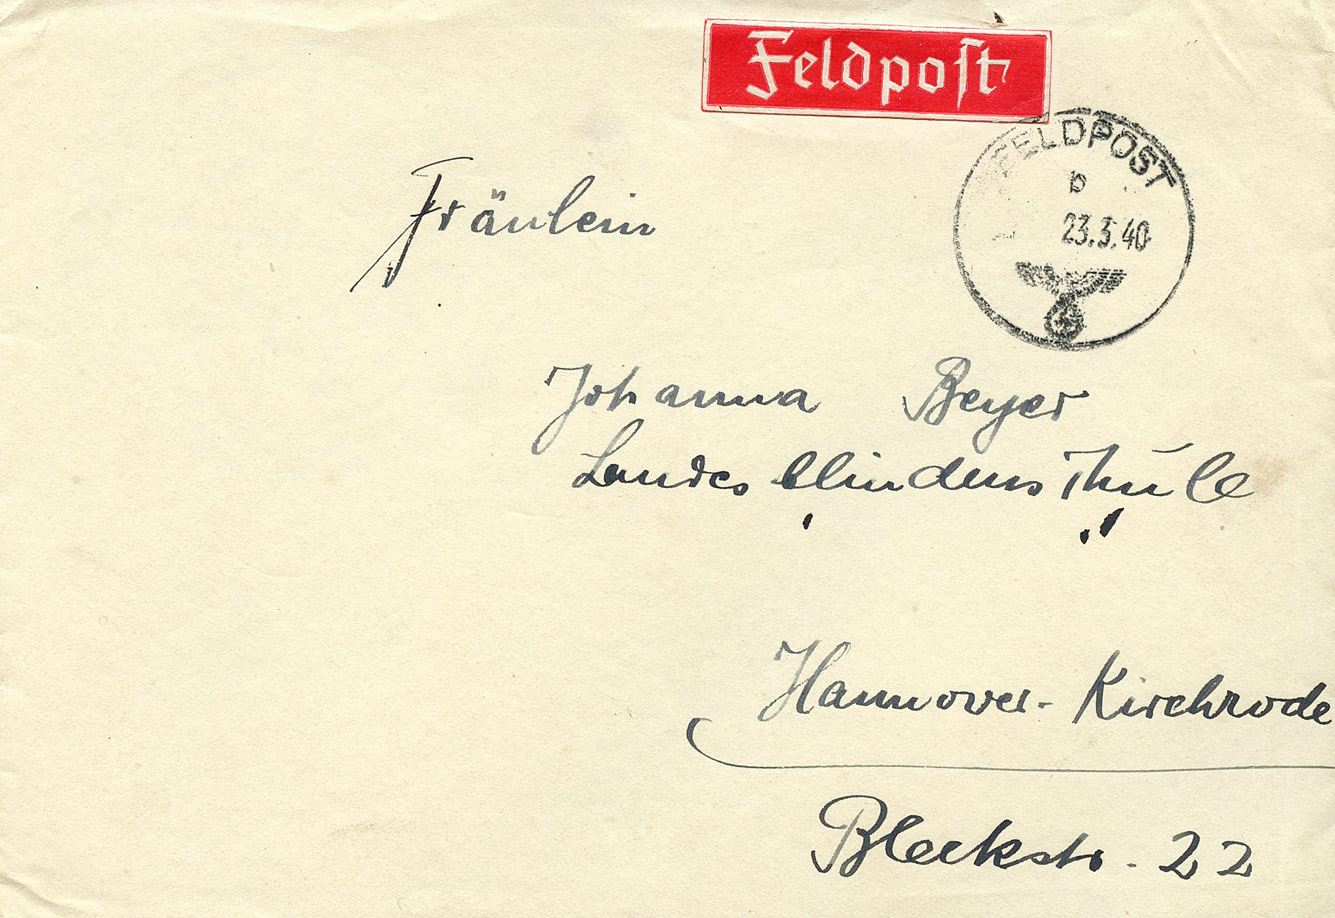 Feldpost
FELDPOST
b
23.3.40
Fräulein
Johanna Beyer
Landesblindenschule
Hannover-Kirchrode
Bleekstr. 22